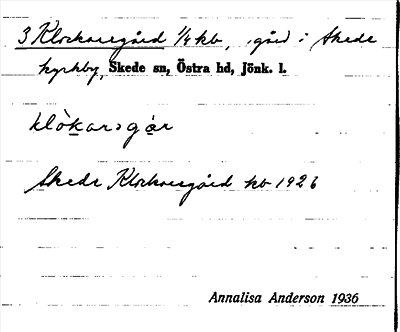 3 Klockaregård 1/4 kb, gård i Skede
kyrkby, Skede sn, Östra hd, Jönk. l.
klòkarəgår
Skede Klockaregård kb 1926
Annalisa Anderson 1936